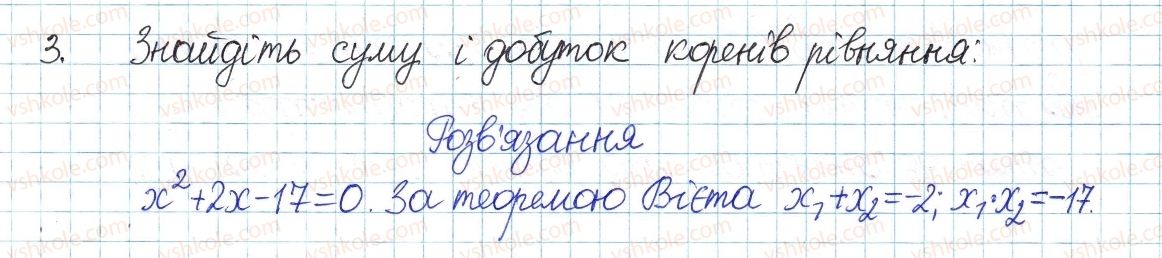 3. Знайдіть суму і добуток коренів рівняння:
Розв'язання
x²+2x-17=0. За теоремою Вієта x₁+x₂=-2; x₁·x₂=-17.